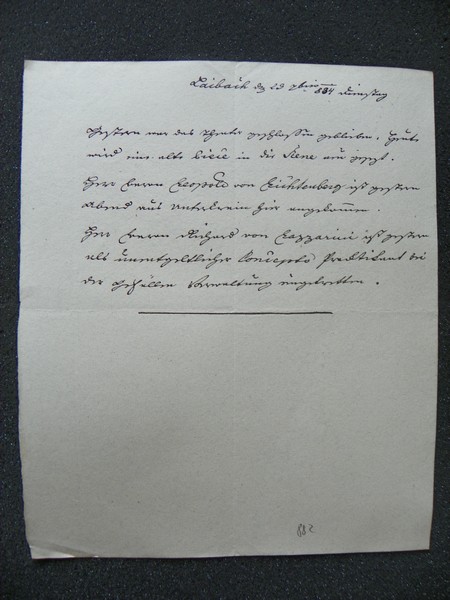 Laibach den 23 Xbris 834 Dienstag
Gestern war das Theater geschlossen geblieben. Heute
wird eine alte in die Scene ein gesezt.
Herr Baron Leopold von Lichtenberg ist gestern
Abend aus Unterkrain hier angekommen.
Herr Baron Richard von Gazzarini ist gestern
als unentgeltlicher Concepts Praktikant bei
der Gefällen Verwaltung eingetretten.
882